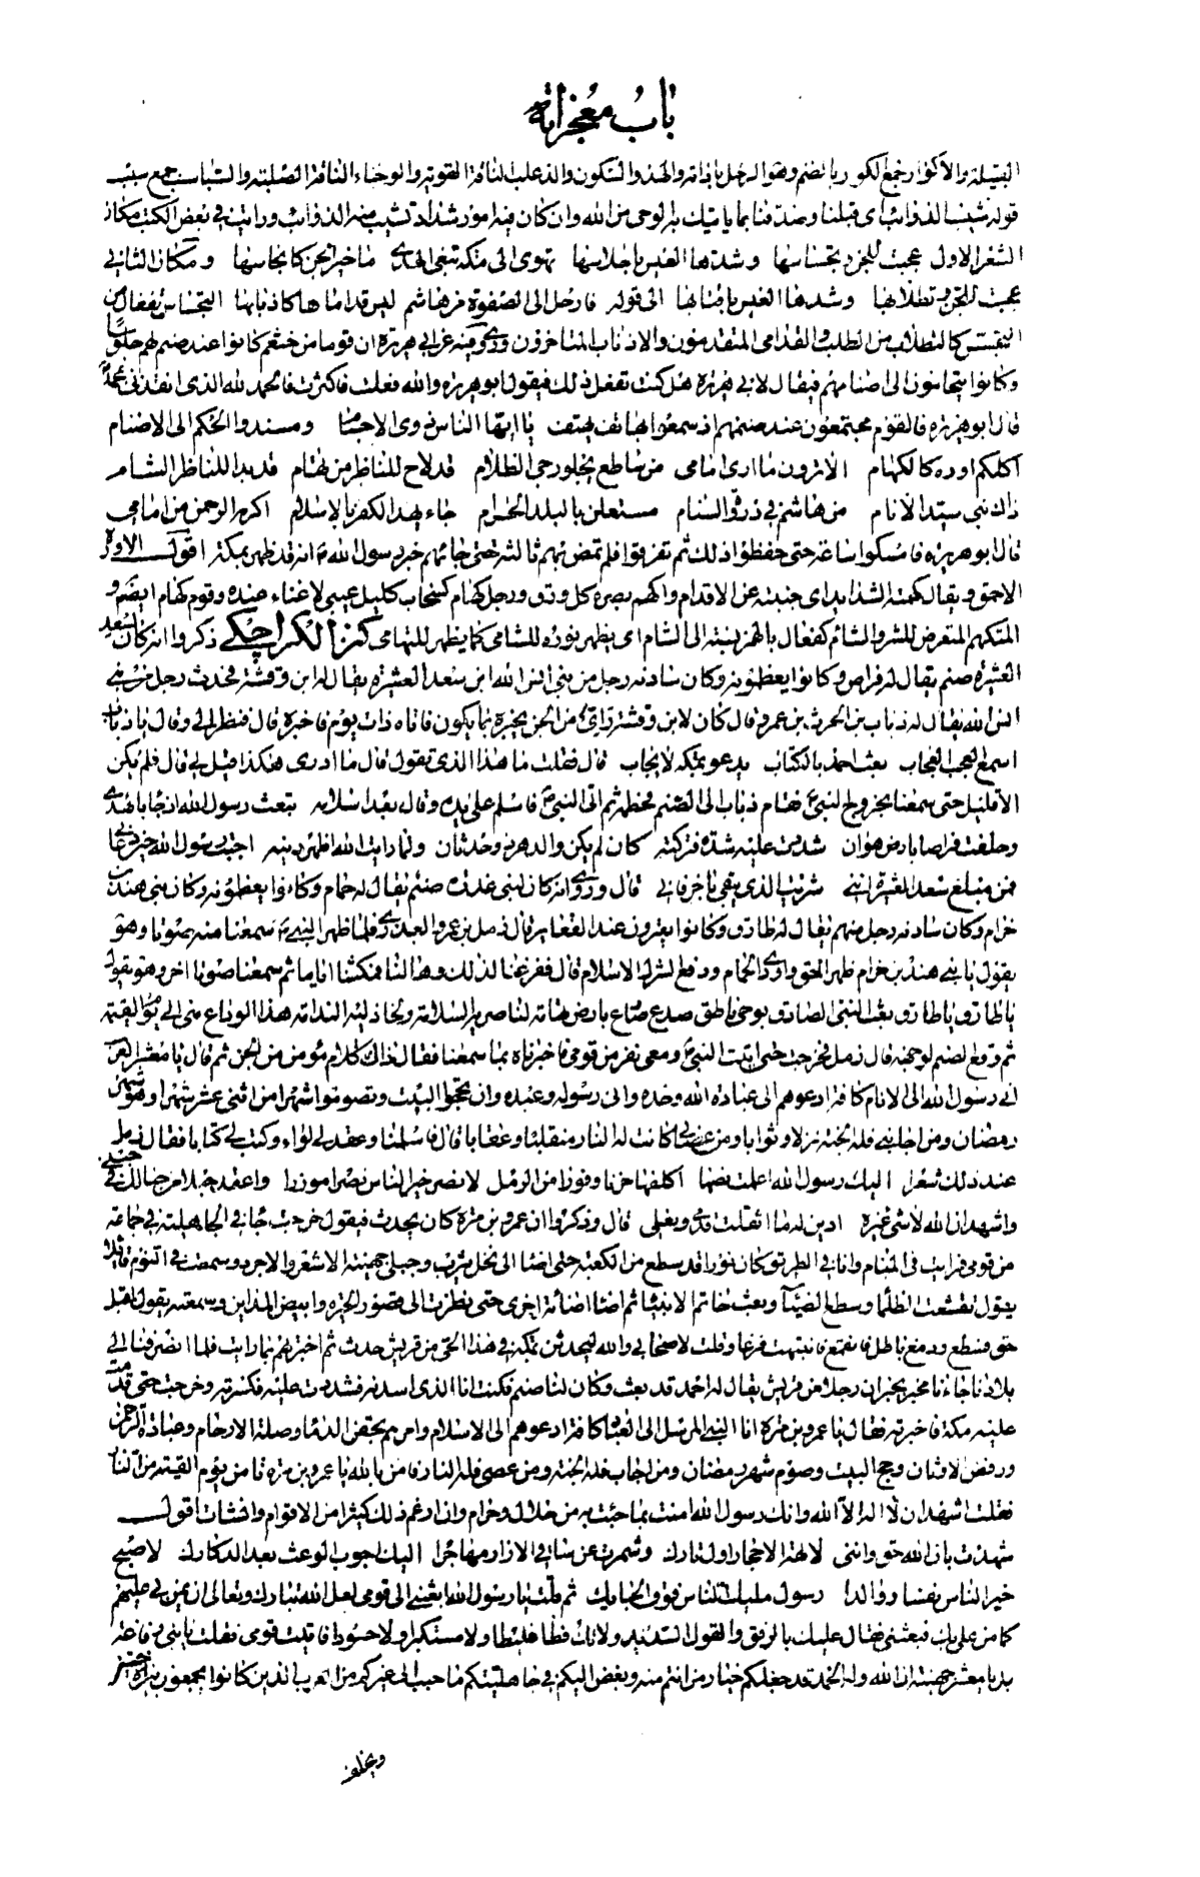 باب معجزاته
القبيلة والاكوار جمع الكور بالضم وهو الرحل باداته والهدو السكون والذعلب الناقة القوية والوجناء الناقة الصلبة والسباسب جمع سبسب
قوله شيب الذوائب اى قبلنا وصدقنا بما ياتيك به الوحى من الله وان كان فيه امور شداد تشيب منه الذوائب ورايت فى بعض الكتب مكان
الشعر الاول عجبت للجن وتجساسها وشدها العيس باحلاسها تهوى الى مكة تبغى الهدى ما خير الجن كانجاسها ومكان الثانى
عجبت للجن وتطلابها وشدها العيس باقتابها الى قوله فارحل الى الصفوة من هاشم ليس قداماها كاذنابها التجساس تفعال من
التجسس كالتطلاب من الطلب والقدامى المتقدمون والاذناب المتاخرون وروى فيه عن ابى هريرة ان قوما من خثعم كانوا عند صنم لهم جلوسا
وكانوا يتحاكمون الى اصنامهم فيقال لابى هريرة هل كنت تفعل ذلك فيقول ابو هريرة والله فعلت فاكثرت فالحمد لله الذى انقذنى بمحمد
قال ابو هريرة فالقوم مجتمعون عند صنمهم اذ سمعوا بهاتف يهتف يا ايها الناس ذوى الاجسام ومسندوا الحكم الى الاصنام
اكلكم اوره كالكهام الا ترون ما ارى امامى من ساطع يجلو دجى الظلام قد لاح للناظر من تهام قد بدا للناظر الشام
ذاك نبى سيد الانام من هاشم فى ذروة السنام مستعلن بالبلد الحرام جاء يهد الكفر بالاسلام اكرمه الرحمن من امام
قال ابو هريرة فامسكوا ساعة حتى حفظوا ذلك ثم تفرقوا فلم تمض بهم ثالثة حتى جائهم خبر رسول الله ص انه قد ظهر بمكة اقول الاوره
الاحمق ويقال كهمته الشدايد اى جنبته عن الاقدام واكهم بصره كل ورق ورجل كهام كسحاب كليل عيى لا غناء عنده وقوم كهام ايضم و
المتكهم المتعرض للشر والشام كفعال بالهمز نسبة الى الشام اى يظهر نوره للشامى كما يظهر للتهامى كنز الكراجكى ذكروا انه كان لسعد
العشيرة صنم يقال له فراص وكانوا يعظمونه وكان سادنه رجل من بنى انس الله ابن سعد العشيرة يقال له ابن وقشة فحدث رجل من بنى
انس الله يقال له ذباب بن الحرث بن عمرو قال كان لابن وقشة رئى من الجن يخبره بما يكون فاتاه ذات يوم فاخبره قال فنظر الى وقال يا ذباب
اسمع العجب العجاب بعث احمد بالكتاب يدعو بمكة لا يجاب قال فقلت ما هذا الذى تقول قال ما ادرى هكذا قيل لى قال فلم يكن
الا قليل حتى سمعنا بخروج النبى ص فقام ذباب الى الصنم فحطمه ثم اتى النبى ص فاسلم على يده وقال بعد اسلامه تبعت رسول الله اذ جاء بالهدى
وخلفت فراصا بارض هوان شددت عليه شدة فتركته كان لم يكن والدهر ذو حدثان ولما رايت الله اظهر دينه اجبت رسول الله حين دعانى
فمن مبلغ سعد العشيرة اننى شريت الذى يبقى باخر فانى قال وروى انه كان لبنى عذرة صنم يقال له حمام وكانوا يعظمونه وكان فى بنى هند بن
حرام وكان سادنه رجل منهم يقال له طارق وكانوا يعترون عنده العقاير قال زمل بن عمرو العذرى فلما ظهر النبى ص سمعنا منه صوتا وهو
يقول يا بنى هند بن حرام ظهر الحق واودى الحمام ودفع الشرك الاسلام قال ففزعنا لذلك وهالنا فمكثنا اياما ثم سمعنا صوتا اخر وهو يقول
يا طارق يا طارق بعث النبى الصادق بوحى ناطق صدع صادع بارض تهامة لناصريه السلامة ولخاذليه الندامة هذا الوداع منى الى يوم القيمة
ثم وقع الصنم لوجهه قال زمل فخرجت حتى اتيت النبى ص ومعى نفر من قومى فاخبرناه بما سمعنا فقال ذاك كلام مؤمن من الجن ثم قال يا معشر العرب
انى رسول الله الى الانام كافة ادعوهم الى عبادة الله وحده وانى رسوله وعبده وان تحجوا البيت وتصوموا شهرا من اثنى عشر شهرا وهو شهر
رمضان ومن اجابنى فله الجنة نزلا وثوابا ومن عصانى كانت له النار منقلبا وعقابا قال فاسلمنا وعقد لى لواء وكتب لى كتابا فقال زمل
عند ذلك شعرا اليك رسول الله اعملت نصها اكلفها حزنا وقوزا من الرمل لانصر خير الناس نصرا موزرا واعقد حبلا من حبالك فى حبلى
واشهد ان الله لا شئ غيره ادين له ما اثقلت قدمى ونعلى قال وذكروا ان عمرو بن مرة كان يحدث فيقول خرجت حاجا فى الجاهلية فى جماعة
من قومى فرايت فى المنام وانا فى الطريق كان نورا قد سطع من الكعبة حتى اضاء الى نخل يثرب وجبلى جهينة الاشعر والاجرد وسمعت فى النوم قائلا
يقول تقشعت الظلماء وسطع الضياء وبعث خاتم الانبياء ثم اضاء اضائة اخرى حتى نظرت الى قصور الحيرة وابيض المداين وسمعته يقول اقبل
حق فسطع ودمغ باطل فانقمع فانتبهت فزعا وقلت لاصحابى والله ليحدثن بمكة فى هذا الحى من قريش حدث ثم اخبرتهم بما رايت فلما انصرفنا الى
بلادنا جاءنا مخبر يخبر ان رجلا من قريش يقال له احمد قد بعث وكان لنا صنم فكنت انا الذى اسدنه فشددت عليه فكسرته وخرجت حتى قدمت
عليه مكة فاخبرته فقال يا عمرو بن مرة انا النبى المرسل الى العباد كافة ادعوهم الى الاسلام وامرهم بحقن الدماء وصلة الارحام وعبادة الرحمن
ورفض الاوثان وحج البيت وصوم شهر رمضان ومن اجاب فله الجنة ومن عصى فله النار فامن بالله يا عمرو بن مرة تامن يوم القيمة من النار
فقلت اشهد ان لا اله الا الله وانك رسول الله امنت بما جئت به من حلال وحرام وان ارغم ذلك كثيرا من الاقوام وانشات اقول
شهدت بان الله حق واننى لالهة الاحجار اول تارك وشمرت عن ساقى الازار مهاجرا اليك اجوب الوعث بعد الدكادك لاصحب
خير الناس نفسا ووالدا رسول مليك الناس فوق الحبايك ثم قلت يا رسول الله ابعثنى الى قومى لعل الله تبارك وتعالى ان يمن بى عليهم
كما من على بك فبعثنى فقال عليك بالرفق والقول السديد ولا تك فظا غليظا ولا مستكبرا ولا حسودا فاتيت قومى فقلت يا بنى رفاعة
بل يا معشر جهينة ان الله وله الحمد قد جعلكم خيار من انتم منه وبغض اليكم فى جاهليتكم ما حبب الى غيركم من العرب الذين كانوا يجمعون بين الاختين
ويخلف